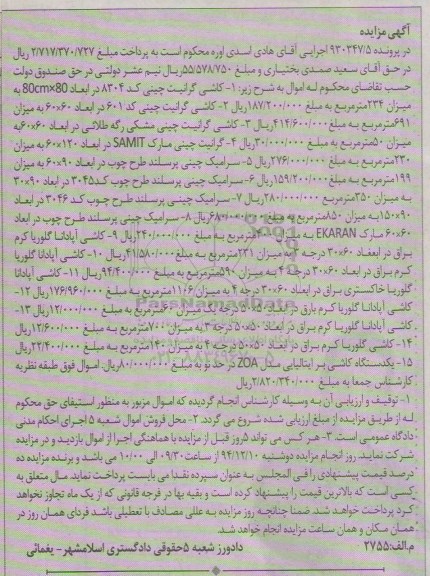 آگهی مزایده
در پرونده ۹۳۰۳۴۷/۵ اجرایی آقای هادی اسدی اوره محکوم است به پرداخت مبلغ ۲/۷۱۷/۳۷۰/۷۳۷ ریال
در حق آقای سعید صمدی بختیاری و مبلغ ۵۵/۵۷۸/۷۵۰ریال نیم عشر دولتی در حق صندوق دولت
حسب تقاضای محکوم له اموال به شرح زیر: ۱- کاشی گرانیت چینی کد ۸۳۰۴ در ابعاد 80×80cm به
میزان ۲۳۴مترمربع به مبلغ ۱۸۷/۲۰۰/۰۰۰ریال ۲- کاشی گرانیت چینی کد ۶۰۱ در ابعاد ۶۰×۶۰ به میزان
۶۹۱مترمربع به مبلغ ۴۱۴/۶۰۰/۰۰۰ریال ۳- کاشی گرانیت چینی مشکی رگه طلائی در ابعاد ۶۰×۶۰به
میزان ۵۰مترمربع به مبلغ ۳۰/۰۰۰/۰۰۰ریال ۴- گرانیت چینی مارک SAMIT در ابعاد ۱۲۰×۶۰ به میزان
۲۳۰مترمربع به مبلغ ۲۷۶/۰۰۰/۰۰۰ریال ۵- سرامیک چینی پرسلند طرح چوب در ابعاد ۹۰×۶۰ به میزان
۱۹۹مترمربع به مبلغ ۱۵۹/۲۰۰/۰۰۰ریال ۶- سرامیک چینی پرسلند طرح چوب کد۳۰۴۵ در ابعاد ۹۰×۳۰
به میزان ۳۵۰مترمربع ۲۸۰/۰۰۰/۰۰۰ریال ۷- سرامیک چینی پرسلند طرح چوب کد ۳۰۴۶ در ابعاد
۹۰×۱۵به میزان ۸۵۰مترمربع به مبلغ ۶۸۰/۰۰۰/۰۰۰ریال ۸- سرامیک چینی پرسلند طرح چوب در ابعاد
۶۰×۶۰ مارک EKARAN به میزان مترمربع به مبلغ ۲۴۰/۰۰۰/۰۰۰ریال ۹- کاشی آپادانا گلوریا کرم
براق در ابعاد ۶۰×۳۰ درجه ۳به میزان ۲۳۱مترمربع به مبلغ ۴۱/۵۸۰/۰۰۰ریال ۱۰- کاشی آپادانا گلوریا
کرم براق در ابعاد ۶۰×۳۰ درجه ۴ به میزان ۵۹۰مترمربع به مبلغ ۹۴/۴۰۰/۰۰۰ریال ۱۱- کاشی آپادانا
گلوریا خاکستری براق در ابعاد ۶۰×۳۰ درجه ۴ به میزان ۱۱۰۶مترمربع به مبلغ ۱۷۶/۹۶۰/۰۰۰ریال ۱۲-
کاشی آپادانا گلوریا کرم براق در ابعاد ۵۰×۵۰ درجه یک میزان ۶۰مترمربع به مبلغ ۱۲/۰۰۰/۰۰۰ریال ۱۳-
کاشی آپادانا گلوریا کرم براق در ابعاد ۵۰×۵۰ درجه ۳ به میزان ۷۰۰مترمربع به مبلغ ۱۲/۶۰۰/۰۰۰ریال
۱۴- کاشی گلوریا کرم براق در ابعاد ۵۰×۵۰ درجه ۴ به میزان ۱۴۰مترمربع به مبلغ ۲۲/۴۰۰/۰۰۰ریال
۱۵- یکدستگاه کاشی بر ایتالیایی مدل ZOA در حد نو به مبلغ ۸۰/۰۰۰/۰۰۰ریال. اموال فوق طبقه نظریه
کارشناس جمعا به مبلغ ۲/۸۲۰/۳۴۰/۰۰۰ریال
۱- توقیف و ارزیابی آن به وسیله کارشناس انجام گردیده که اموال مزبور به منظور استیفای حق محکوم
له از طریق مزایده از مبلغ ارزیابی شده شروع می گردد. ۲- محل فروش اموال شعبه ۵ اجرای احکام مدنی
دادگاه عمومی است. ۳- هر کس می تواند ۵روز قبل از مزایده با هماهنگی اجرا از اموال بازدید و در مزایده
شرکت نمایند. روز انجام مزایده دوشنبه ۹۴/۱۲/۱۰ از ساعت ۰۹/۳۰ الی ۱۰/۰۰ می باشد و برنده مزایده ده
درصد قیمت پیشنهادی را فی المجلس به عنوان سپرده نقدا می بایست پرداخت نماید. مال متعلق به
کسی است که بالاترین قیمت را پیشنهاد کرده است و بقیه بها در فرجه قانونی که از یک ماه تجاوز نخواهد
کرد پرداخت خواهد شد. ضمنا چنانچه روز مزایده به عللی مصادف با تعطیلی باشد فردای همان روز در
همان مکان و همان ساعت مزایده انجام خواهد شد.
م.الف:۲۷۵۵ دادورز شعبه ۵حقوقی دادگستری اسلامشهر- یغمائی